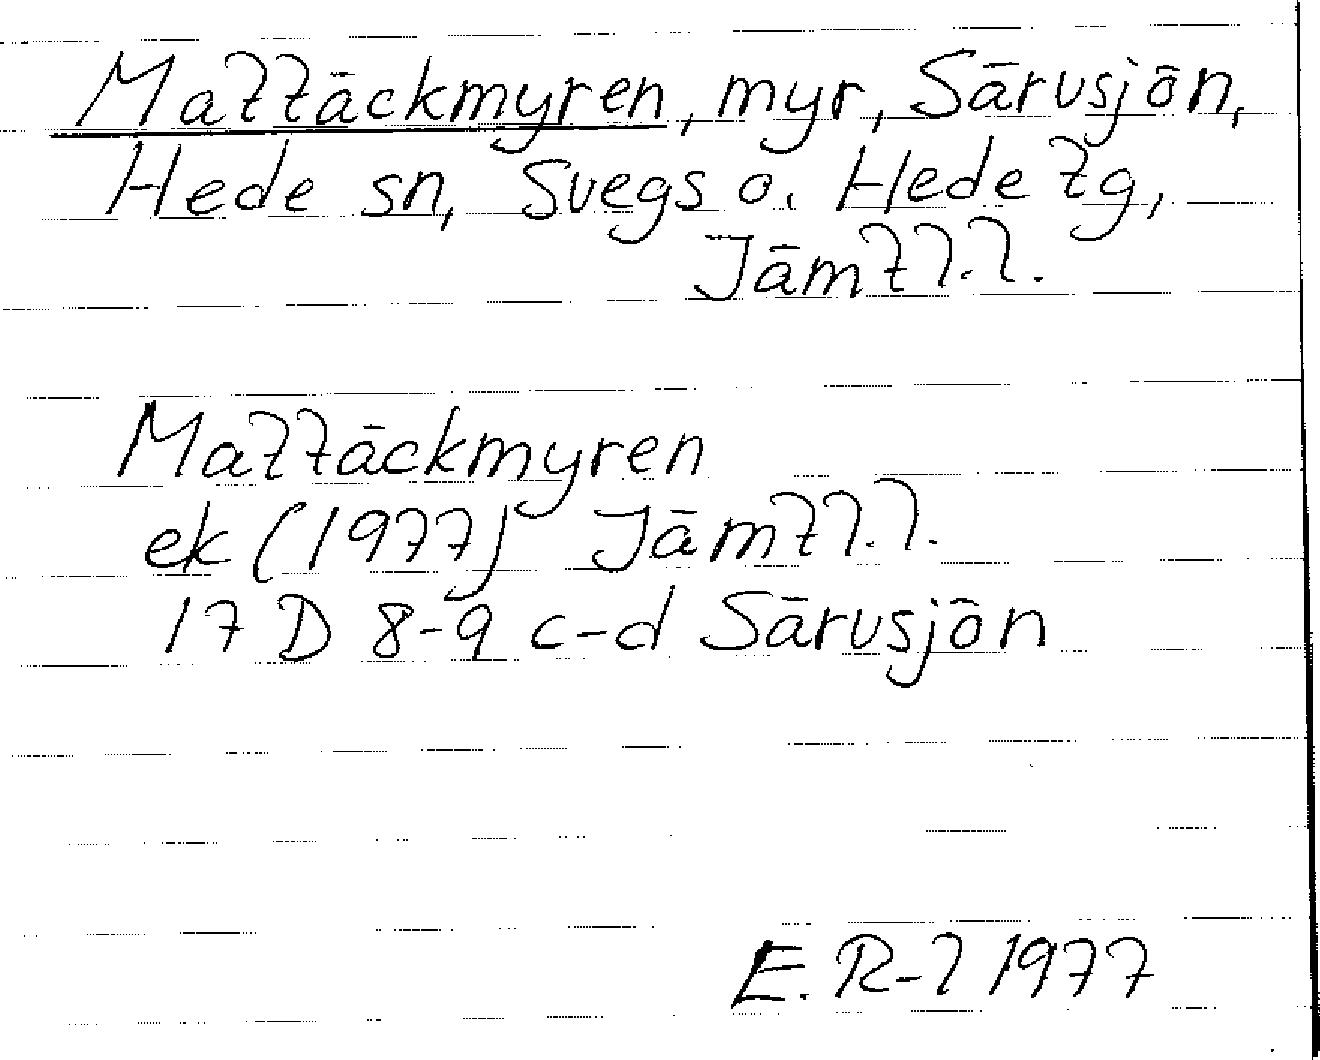 Mattäckmyren, myr, Särvsjön,
Hede sn, Svegs o. Hede tg,
Jämtl.l.
Mattäckmyren
ek (1977) Jämtl.l.
17 D 8-9 c-d Särvsjön
E. R-l 1977